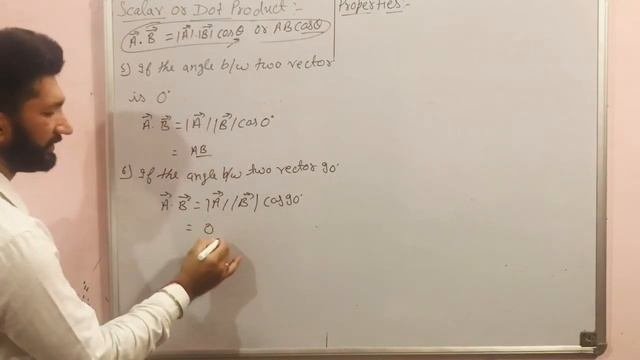 Scalar or Dot Product :-
A⃗. B⃗ = |A⃗|.|B⃗| cosθ or AB cosθ
5) If the angle b/w two vector
is 0°
A⃗. B⃗ = |A⃗| |B⃗| cos 0°
= AB
6) If the angle b/w two vector 90°
A⃗. B⃗ = |A⃗| |B⃗| cos 90°
= 0
Properties :-